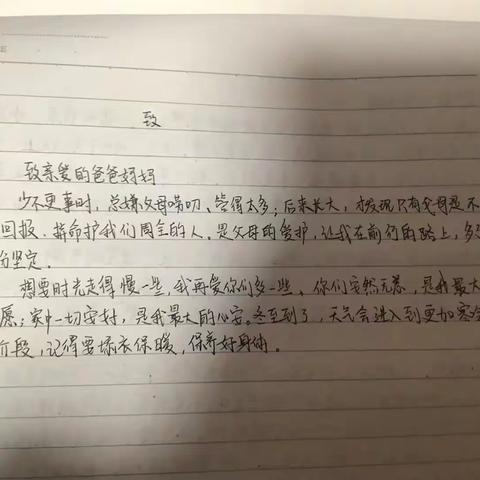 致
致亲爱的爸爸妈妈
少不更事时，总嫌父母唠叨、管得太多；后来长大，才发现只有父母是不
回报、拼命护我们周全的人。是父母的爱护，让我在前行的路上，多
份坚定。
想要时光走得慢一些，我再爱你们多一些。你们安然无恙，是我最大
愿；家中一切安好，是我最大的心安。冬至到了，天气会进入到更加寒冷
阶段，记得要添衣保暖，保养好身体。